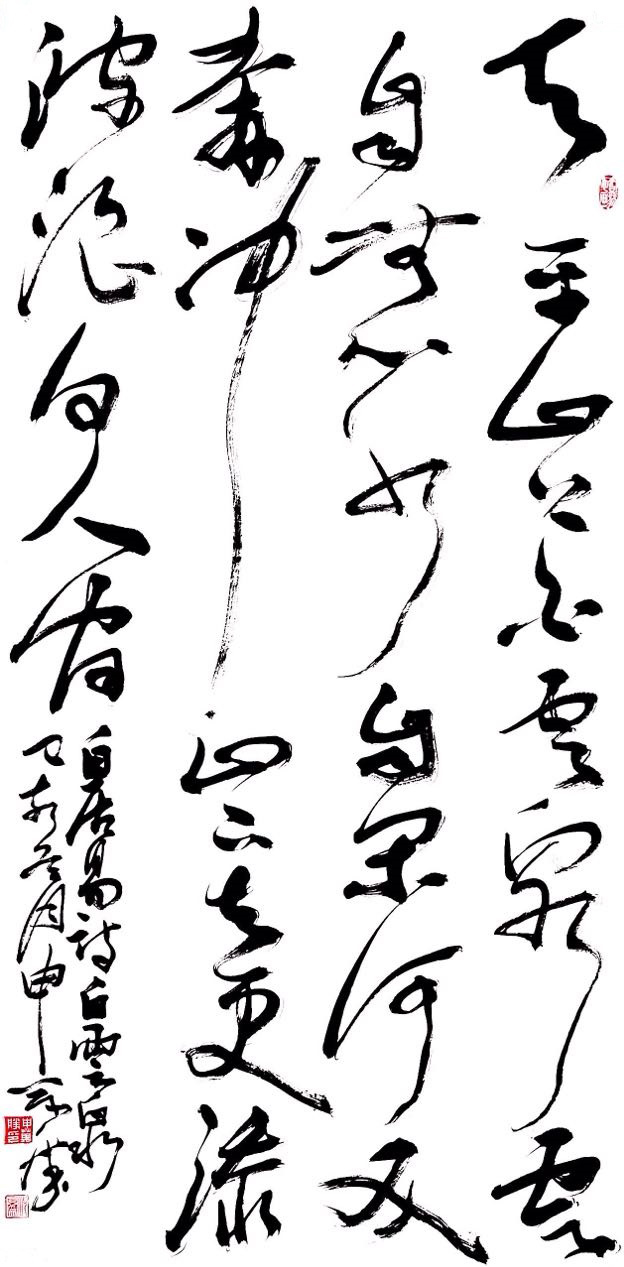 天平山上白雲泉雲
自無心水自閑何必
奔冲山下去更添
波浪向人間
白居易詩白雲泉
己亥冬月申萬勝